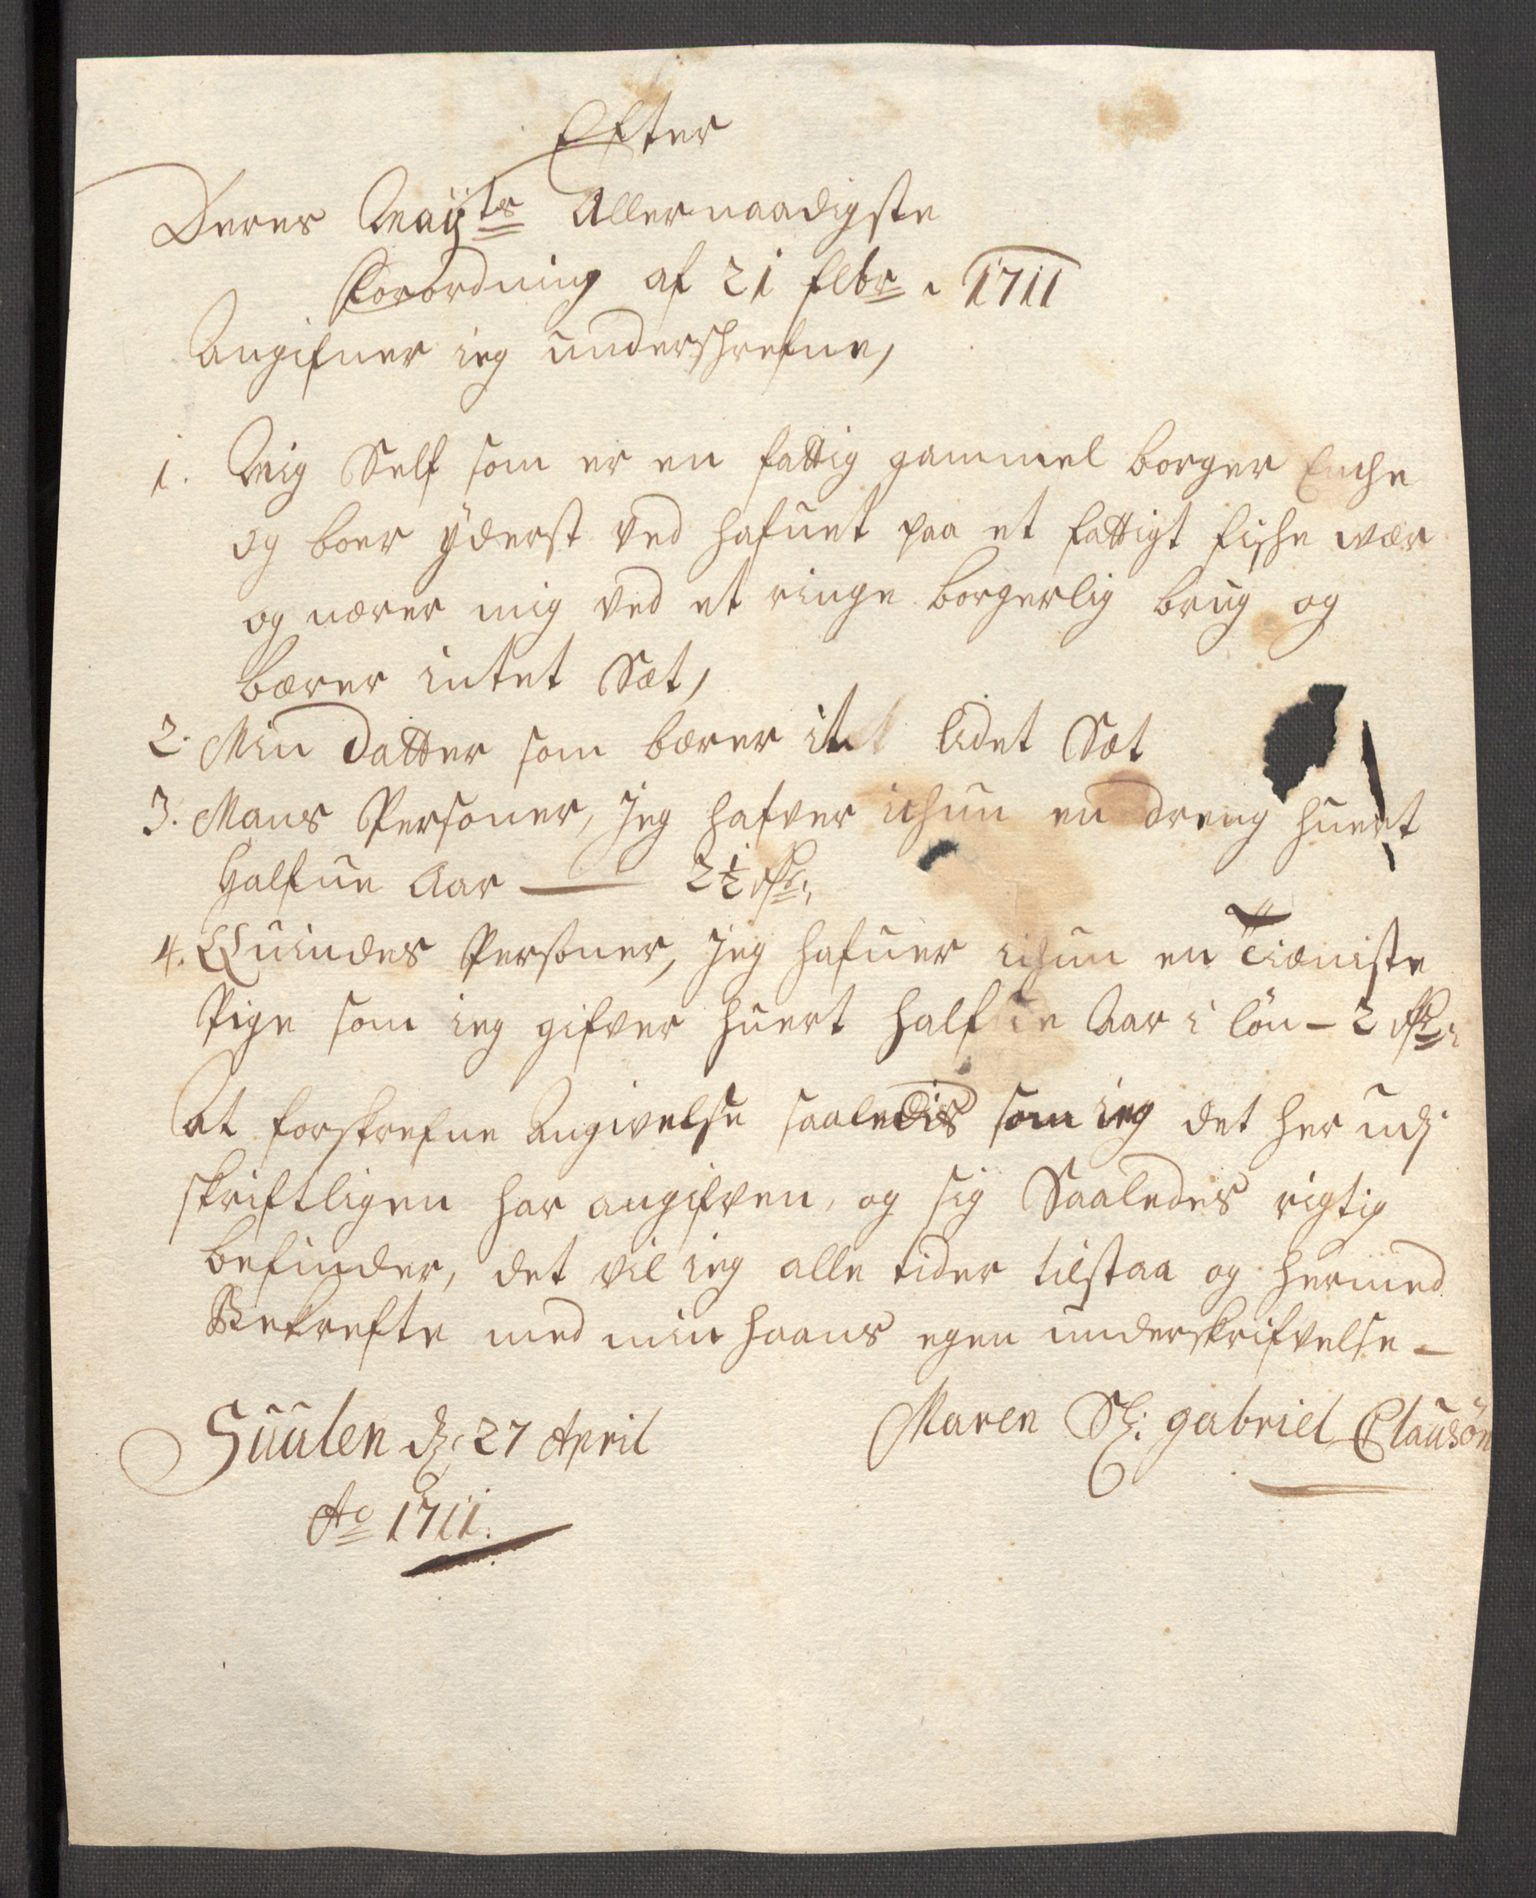 Efter
Deres Mayts Allernaadigste
Forordning af 21 febr. 1711
Angifuer ieg underschrefne,
1. Mig Self som er en fattig gammel borger Enche
og boer yderst ved hafuet paa et fattigt fische wær
og nærer mig ved et ringe borgerlig brug og
bærer intet Sæt,
2. Min Datter som bærer lidet Sæt
3. Mans Personer, Jeg hafver ichun en dreng huert
Halfue Aar — 2½ Rd:
4. Quindes Personer, Jeg hafuer ichun en Tieniste
Pige som ieg gifver huert halfue Aar i lön – 2 Rd:
At forskrefne Angivelse saaledis som ieg det her udj
skriftligen har angifven, og sig Saaledes rigtig
befinder, det vil ieg alle tider tilstaa og hermed
Bekrefte med min haans egen underskrifvelse –
Suulen d: 27 April
Maren Sl: gabriel Clausøn
Ao 1711.